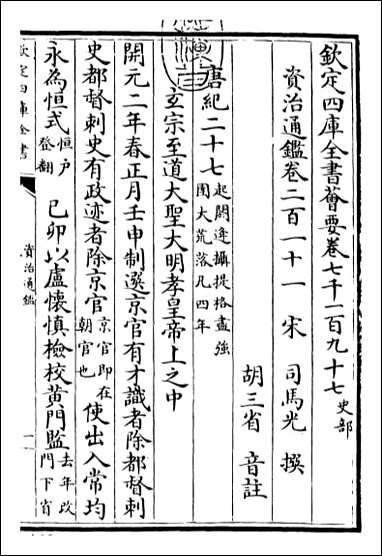 欽定四庫全書薈要卷七千一百九十七 史部
資治通鑑卷二百一十一 宋 司馬光 撰
胡三省 音註
唐紀二十七 起閼逢攝提格盡強圉大荒落凡四年
玄宗至道大聖大明孝皇帝上之中
開元二年春正月壬申制選京官有才識者除都督刺
史都督刺史有政迹者除京官 京官即在朝官也 使出入常均
永為恒式 恒户登翻 己卯以盧懷慎檢校黄門監 去年改門下省
欽定四庫全書
資治通鑑